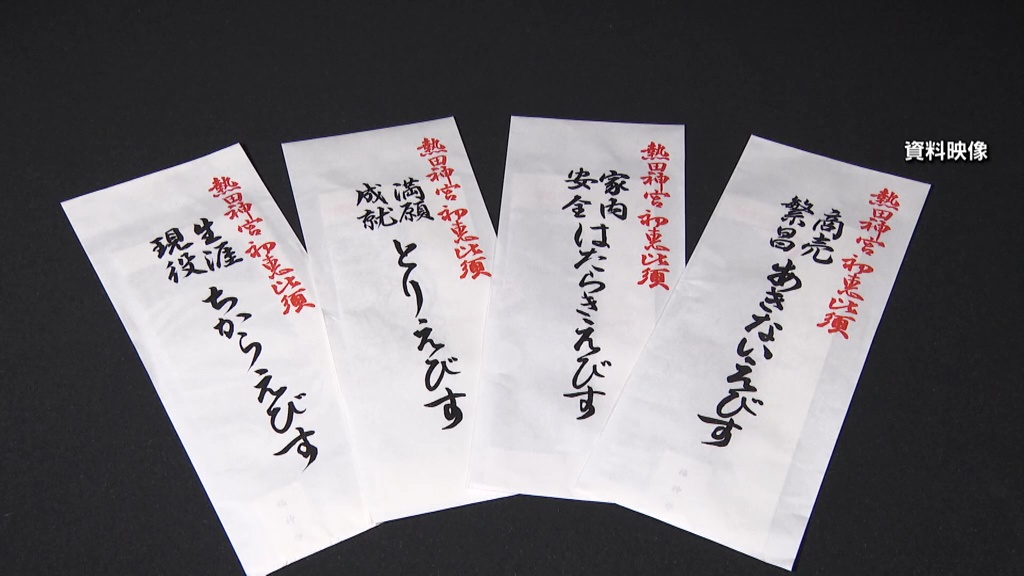 資料映像
熱田神宮 初恵比須
商売
繁昌
あきないえびす
熱田神宮 初恵比須
家内
安全
はたらきえびす
熱田神宮 初恵比須
満願
成就
とりえびす
熱田神宮 初恵比須
生涯
現役
ちからえびす